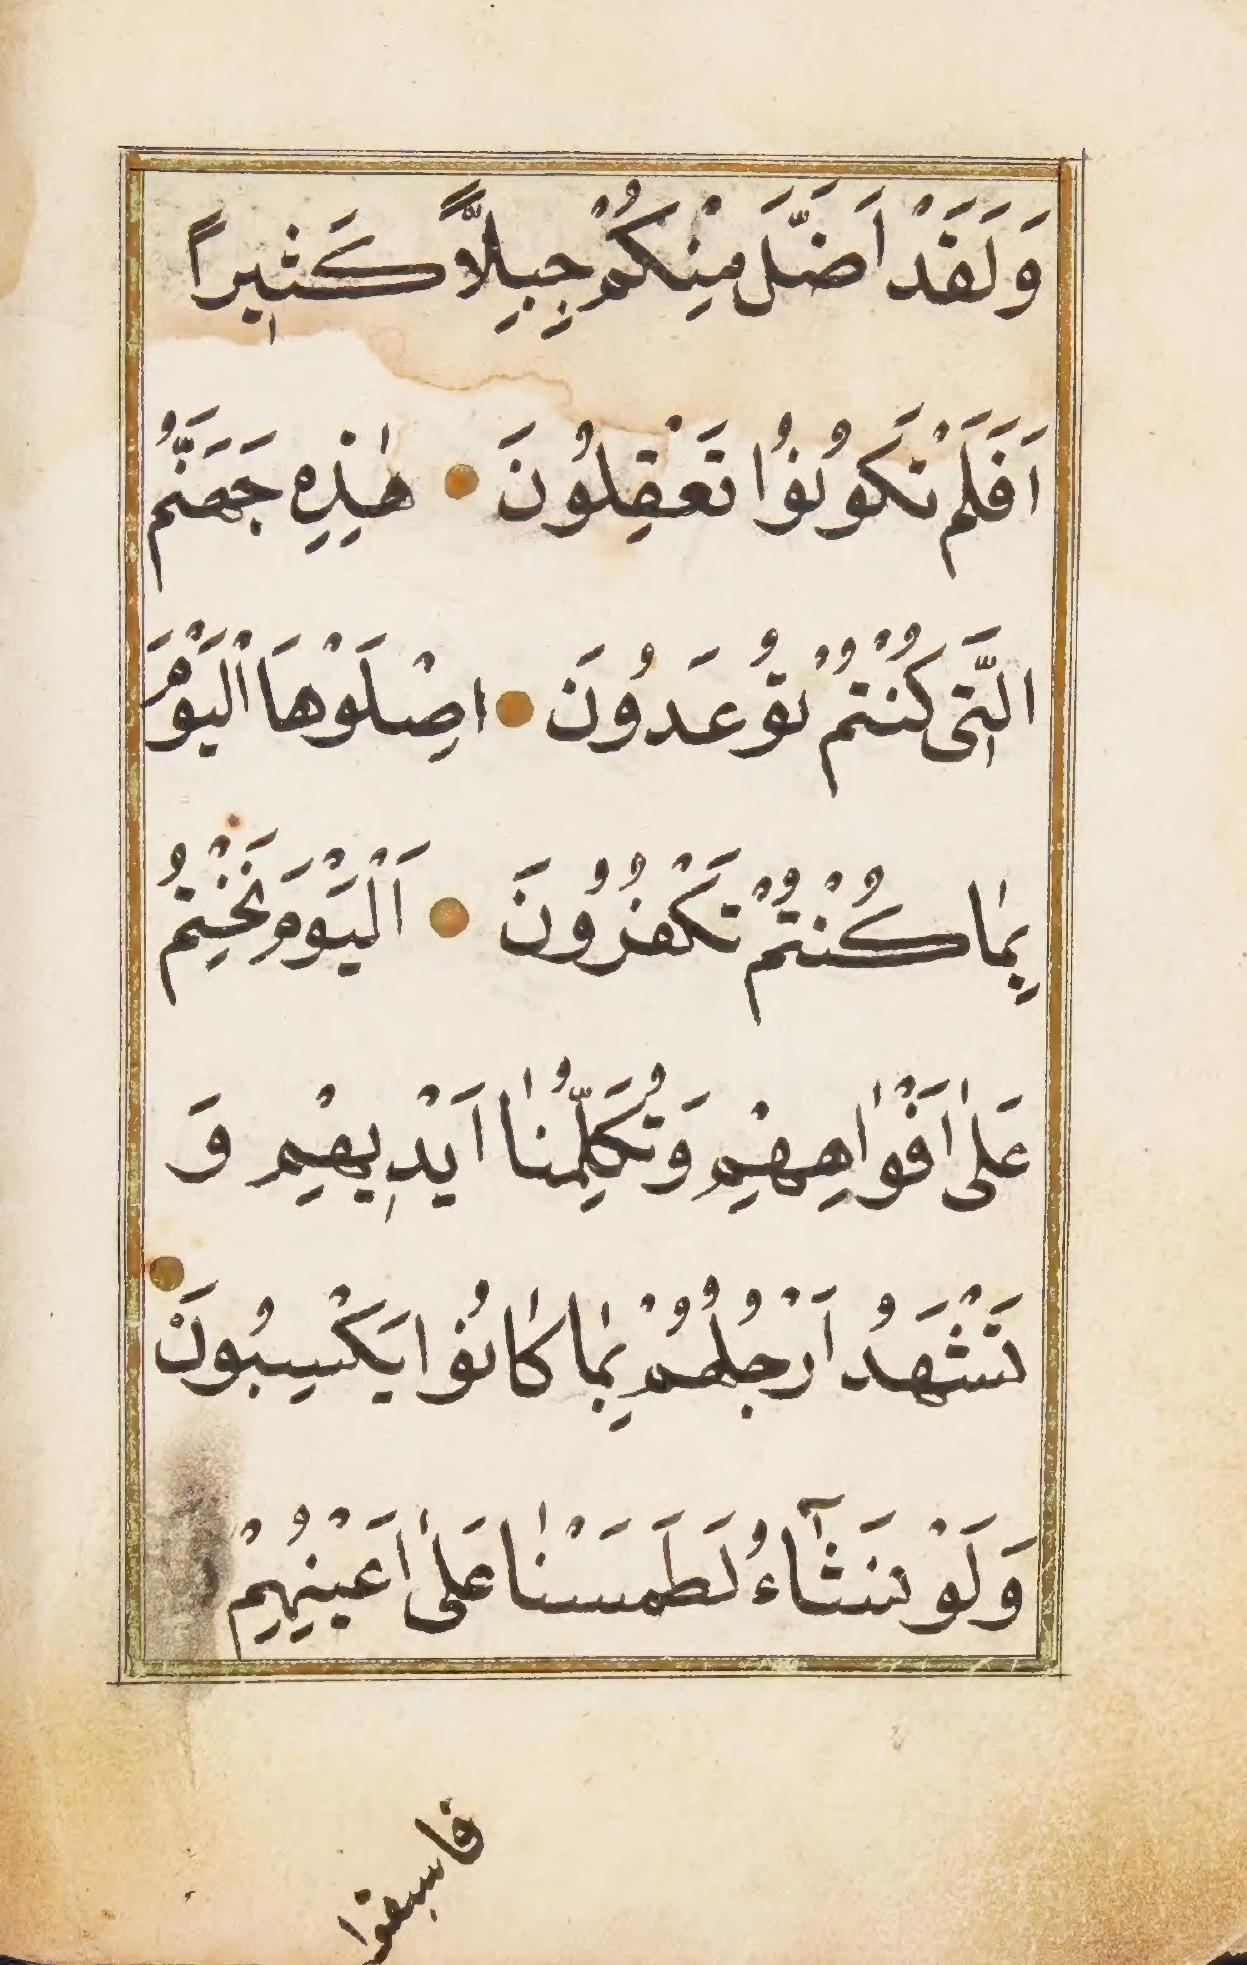 وَلَقَدْ اَضَلَّ مِنْكُمْ جِبِلاًّ كَثٖيراً
اَفَلَمْ تَكُونُوا تَعْقِلُونَ هٰذِهِ جَهَنَّمُ
الَّتٖى كُنْتُمْ تُوعَدُونَ اِصْلَوْهَا الْيَوْمَ
بِمٰا كُنْتُمْ تَكْفُرُونَ اَلْيَوْمَ نَخْتِمُ
عَلٰى اَفْوٰاهِهِمْ وَتُكَلِّمُنٰا اَيْدٖيهِمْ وَ
تَشْهَدُ اَرْجُلُهُمْ بِمٰا كٰانُوا يَكْسِبُونَ
وَلَوْ نَشَآءُ لَطَمَسْنٰا عَلٰى اَعْيُنِهِمْ
فاسبقوا